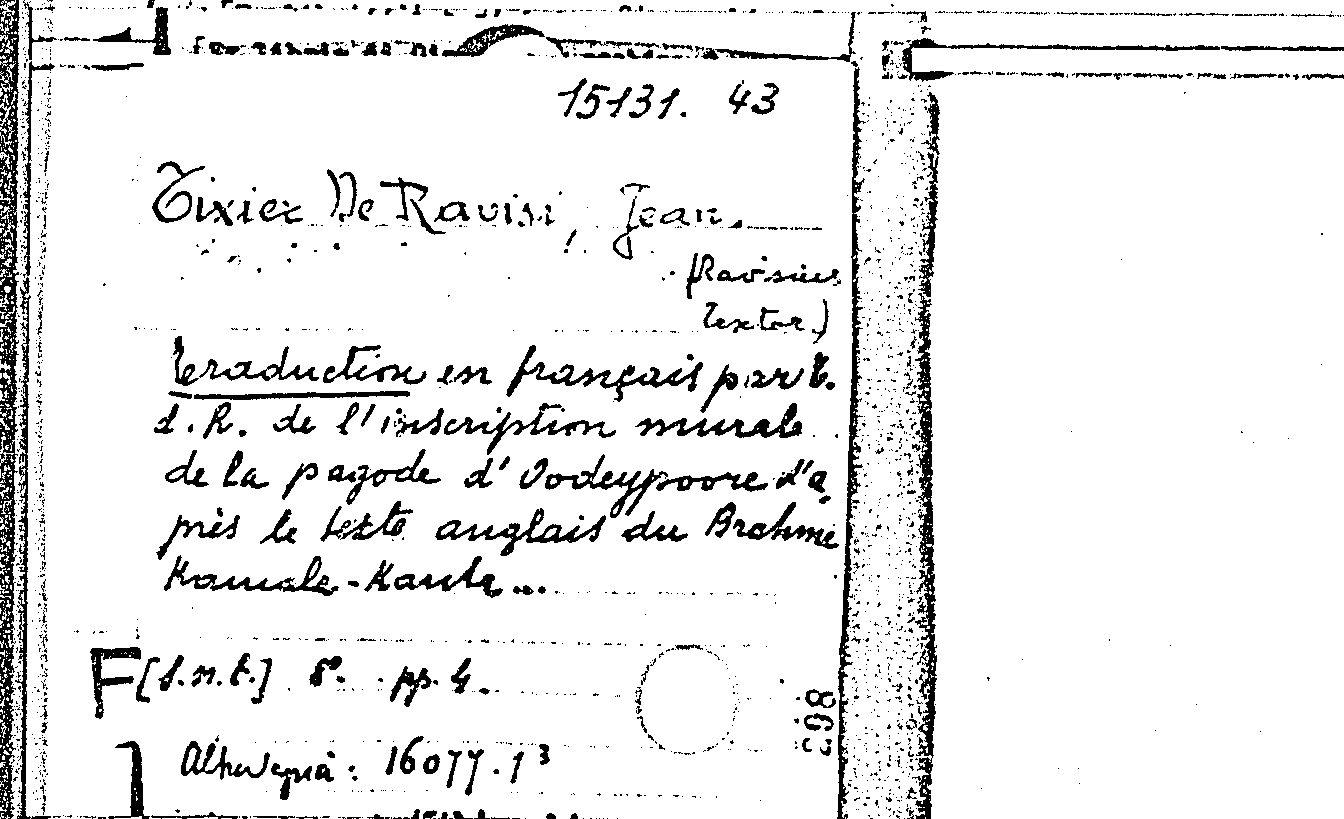 15131. 43
Tixier De Ravisi, Jean.
(Ravisius
Textor)
Traduction en français par T.
d. R. de l'inscription murale
de la pagode d'Oodeypoore d'a
près le texte anglais du Brahme
Kamale-Kanta...
F [s.n.t.] 8º. pp. 4.
808
16077.1³